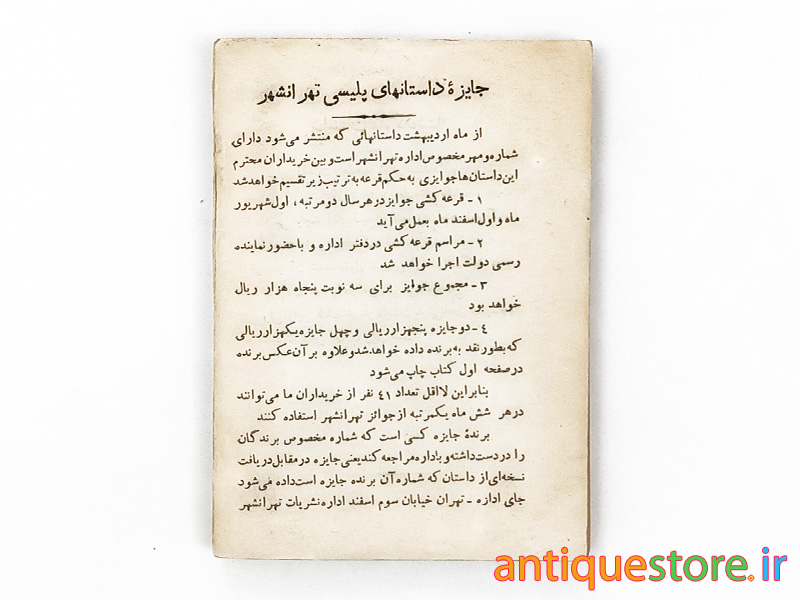 جایزهٔ داستانهای پلیسی تهرانشهر
از ماه اردیبهشت داستانهائی که منتشر می‌شود دارای
شماره ومهر مخصوص اداره تهرانشهر است وبین خریداران محترم
این داستان‌ها جوایزی به حکم قرعه به ترتیب زیر تقسیم خواهد شد
۱ - قرعه کشی جوایز درهر سال دو مرتبه ، اول شهریور
ماه و اول اسفند ماه بعمل می‌آید
۲ - مراسم قرعه کشی در دفتر اداره و با حضور نماینده
رسمی دولت اجرا خواهد شد
۳ - مجموع جوایز برای سه نوبت پنجاه هزار ریال
خواهد بود
٤ - دو جایزه پنجهزار ریالی و چهل جایزه یکهزار ریالی
که بطور نقد به برنده داده خواهد شد و علاوه بر آن عکس برنده
در صفحه اول کتاب چاپ می‌شود
بنابراین لااقل تعداد ٤۱ نفر از خریداران ما می‌توانند
در هر شش ماه یکمرتبه از جوائز تهرانشهر استفاده کنند
برندهٔ جایزه کسی است که شماره مخصوص برندگان
را در دست داشته و باداره مراجعه کند یعنی جایزه در مقابل دریافت
نسخه‌ای از داستان که شماره آن برنده جایزه است داده می‌شود
جای اداره - تهران خیابان سوم اسفند اداره نشریات تهرانشهر
antiquestore.ir